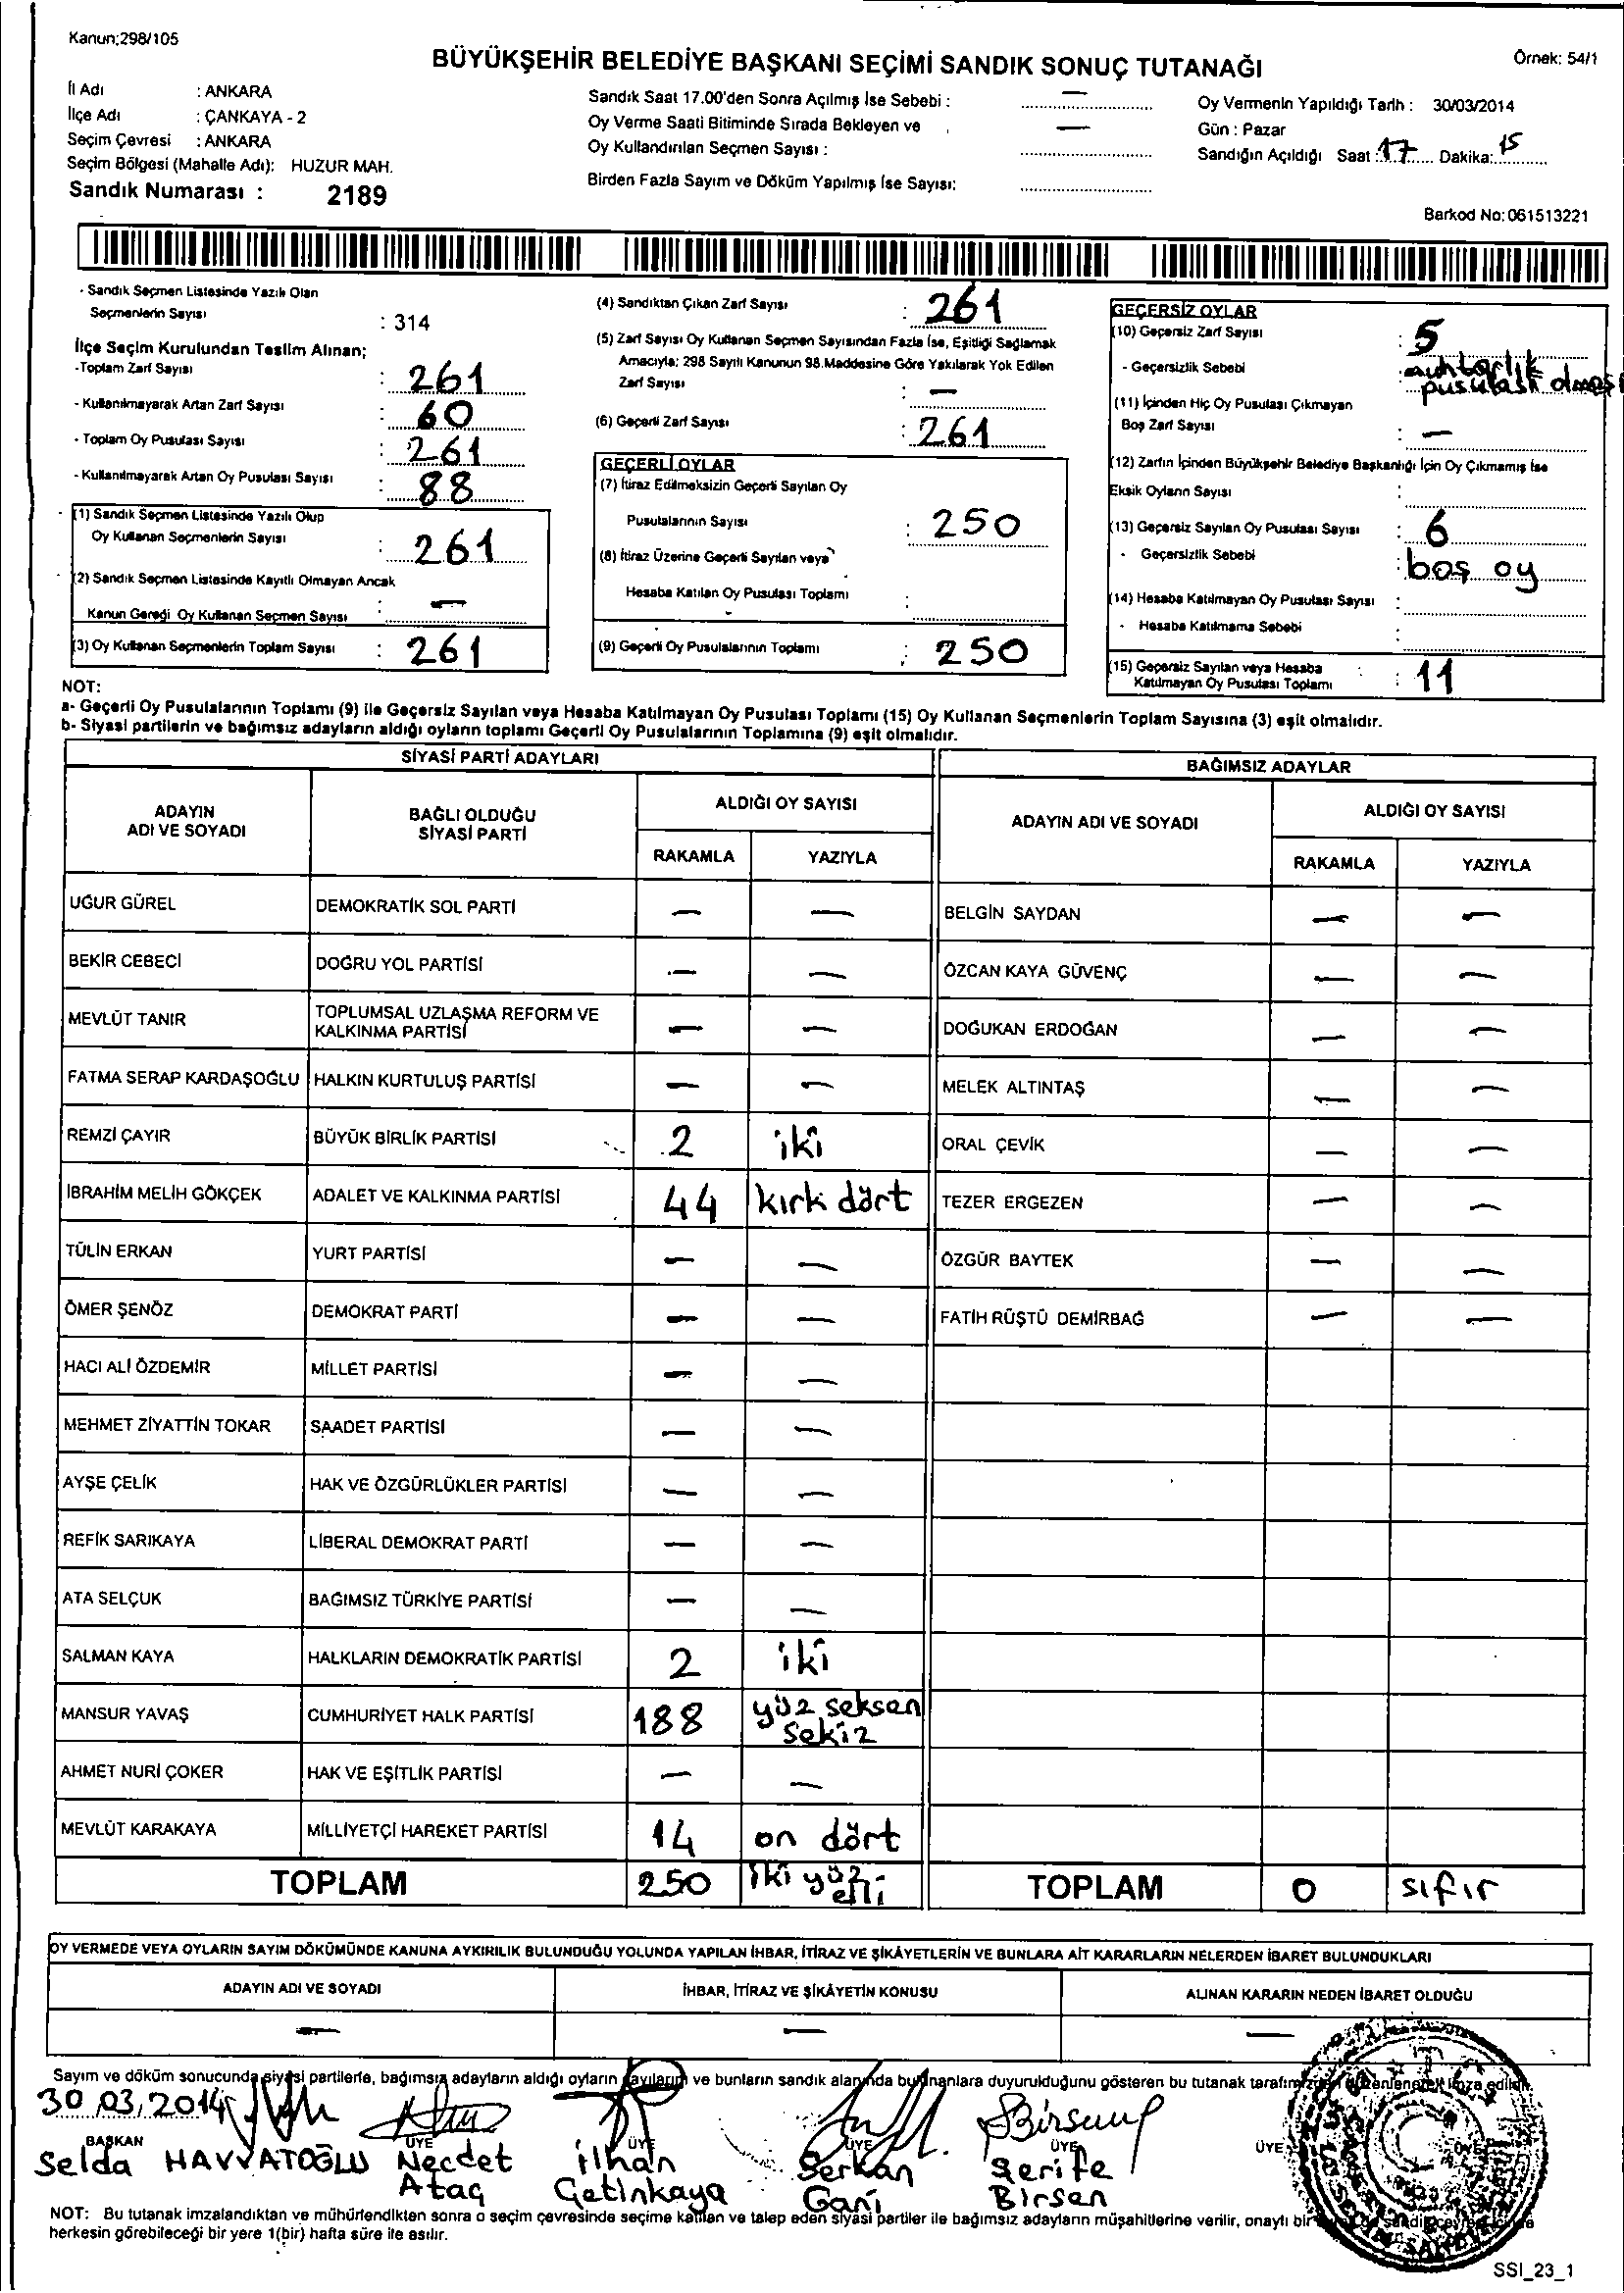 Kanun;298/105
BÜYÜKŞEHİR BELEDİYE BAŞKANI SEÇİMİ SANDIK SONUÇ TUTANAĞI
Örnek: 54/1
İl Adı : ANKARA
İlçe Adı : ÇANKAYA - 2
Seçim Çevresi : ANKARA
Seçim Bölgesi (Mahalle Adı): HUZUR MAH.
Sandık Numarası : 2189
Sandık Saat 17.00'den Sonra Açılmış İse Sebebi : —
Oy Verme Saati Bitiminde Sırada Bekleyen ve
Oy Kullandırılan Seçmen Sayısı : —
Birden Fazla Sayım ve Döküm Yapılmış İse Sayısı:
Oy Vermenin Yapıldığı Tarih : 30/03/2014
Gün : Pazar
Sandığın Açıldığı Saat : 17 Dakika: 15
Barkod No: 061513221
- Sandık Seçmen Listesinde Yazılı Olan
Seçmenlerin Sayısı : 314
İlçe Seçim Kurulundan Teslim Alınan;
-Toplam Zarf Sayısı : 261
- Kullanılmayarak Artan Zarf Sayısı : 60
- Toplam Oy Pusulası Sayısı : 261
- Kullanılmayarak Artan Oy Pusulası Sayısı : 88
(1) Sandık Seçmen Listesinde Yazılı Olup
Oy Kullanan Seçmenlerin Sayısı : 261
(2) Sandık Seçmen Listesinde Kayıtlı Olmayan Ancak
Kanun Gereği Oy Kullanan Seçmen Sayısı : —
(3) Oy Kullanan Seçmenlerin Toplam Sayısı : 261
(4) Sandıktan Çıkan Zarf Sayısı : 261
(5) Zarf Sayısı Oy Kullanan Seçmen Sayısından Fazla İse, Eşitliği Sağlamak
Amacıyla; 298 Sayılı Kanunun 98.Maddesine Göre Yakılarak Yok Edilen
Zarf Sayısı : —
(6) Geçerli Zarf Sayısı : 261
GEÇERLİ OYLAR
(7) İtiraz Edilmeksizin Geçerli Sayılan Oy
Pusulalarının Sayısı : 250
(8) İtiraz Üzerine Geçerli Sayılan veya
Hesaba Katılan Oy Pusulası Toplamı :
(9) Geçerli Oy Pusulalarının Toplamı : 250
GEÇERSİZ OYLAR
(10) Geçersiz Zarf Sayısı : 5
- Geçersizlik Sebebi : muhtarlık
pusulası
(11) İçinden Hiç Oy Pusulası Çıkmayan
Boş Zarf Sayısı : —
(12) Zarfın İçinden Büyükşehir Belediye Başkanlığı İçin Oy Çıkmamış İse
Eksik Oyların Sayısı :
(13) Geçersiz Sayılan Oy Pusulası Sayısı : 6
- Geçersizlik Sebebi : boş oy
(14) Hesaba Katılmayan Oy Pusulası Sayısı :
- Hesaba Katılmama Sebebi :
(15) Geçersiz Sayılan veya Hesaba
Katılmayan Oy Pusulası Toplamı : 11
NOT:
a- Geçerli Oy Pusulalarının Toplamı (9) ile Geçersiz Sayılan veya Hesaba Katılmayan Oy Pusulası Toplamı (15) Oy Kullanan Seçmenlerin Toplam Sayısına (3) eşit olmalıdır.
b- Siyasi partilerin ve bağımsız adayların aldığı oyların toplamı Geçerli Oy Pusulalarının Toplamına (9) eşit olmalıdır.
SİYASİ PARTİ ADAYLARI
ADAYIN ADI VE SOYADI BAĞLI OLDUĞU SİYASİ PARTİ ALDIĞI OY SAYISI
RAKAMLA YAZIYLA
UĞUR GÜREL DEMOKRATİK SOL PARTİ — —
BEKİR CEBECİ DOĞRU YOL PARTİSİ — —
MEVLÜT TANIR TOPLUMSAL UZLAŞMA REFORM VE KALKINMA PARTİSİ — —
FATMA SERAP KARDAŞOĞLU HALKIN KURTULUŞ PARTİSİ — —
REMZİ ÇAYIR BÜYÜK BİRLİK PARTİSİ 2 iki
İBRAHİM MELİH GÖKÇEK ADALET VE KALKINMA PARTİSİ 44 kırk dört
TÜLİN ERKAN YURT PARTİSİ — —
ÖMER ŞENÖZ DEMOKRAT PARTİ — —
HACI ALİ ÖZDEMİR MİLLET PARTİSİ — —
MEHMET ZİYATTİN TOKAR SAADET PARTİSİ — —
AYŞE ÇELİK HAK VE ÖZGÜRLÜKLER PARTİSİ — —
REFİK SARIKAYA LİBERAL DEMOKRAT PARTİ — —
ATA SELÇUK BAĞIMSIZ TÜRKİYE PARTİSİ — —
SALMAN KAYA HALKLARIN DEMOKRATİK PARTİSİ 2 iki
MANSUR YAVAŞ CUMHURİYET HALK PARTİSİ 188 yüz seksen sekiz
AHMET NURİ ÇOKER HAK VE EŞİTLİK PARTİSİ — —
MEVLÜT KARAKAYA MİLLİYETÇİ HAREKET PARTİSİ 14 on dört
TOPLAM 250 iki yüz elli
BAĞIMSIZ ADAYLAR
ADAYIN ADI VE SOYADI ALDIĞI OY SAYISI
RAKAMLA YAZIYLA
BELGİN SAYDAN — —
ÖZCAN KAYA GÜVENÇ — —
DOĞUKAN ERDOĞAN — —
MELEK ALTINTAŞ — —
ORAL ÇEVİK — —
TEZER ERGEZEN — —
ÖZGÜR BAYTEK — —
FATİH RÜŞTÜ DEMİRBAĞ — —
TOPLAM 0 sıfır
OY VERMEDE VEYA OYLARIN SAYIM DÖKÜMÜNDE KANUNA AYKIRILIK BULUNDUĞU YOLUNDA YAPILAN İHBAR, İTİRAZ VE ŞİKÂYETLERİN VE BUNLARA AİT KARARLARIN NELERDEN İBARET BULUNDUKLARI
ADAYIN ADI VE SOYADI İHBAR, İTİRAZ VE ŞİKÂYETİN KONUSU ALINAN KARARIN NEDEN İBARET OLDUĞU
— — —
Sayım ve döküm sonucunda siyasi partilerle, bağımsız adayların aldığı oyların sayılarını ve bunların sandık alanında bulunanlara duyurulduğunu gösteren bu tutanak tarafımızdan düzenlenerek imza edildi.
30.03.2014
BAŞKAN ÜYE ÜYE ÜYE ÜYE ÜYE ÜYE
Selda HAVVATOĞLU Necdet Ataç İlhan Çetinkaya Serkan Gani Şerife Birsen
NOT: Bu tutanak imzalandıktan ve mühürlendikten sonra o seçim çevresinde seçime katılan ve talep eden siyasi partiler ile bağımsız adayların müşahitlerine verilir, onaylı bir
herkesin görebileceği bir yere 1(bir) hafta süre ile asılır.
SSI_23_1